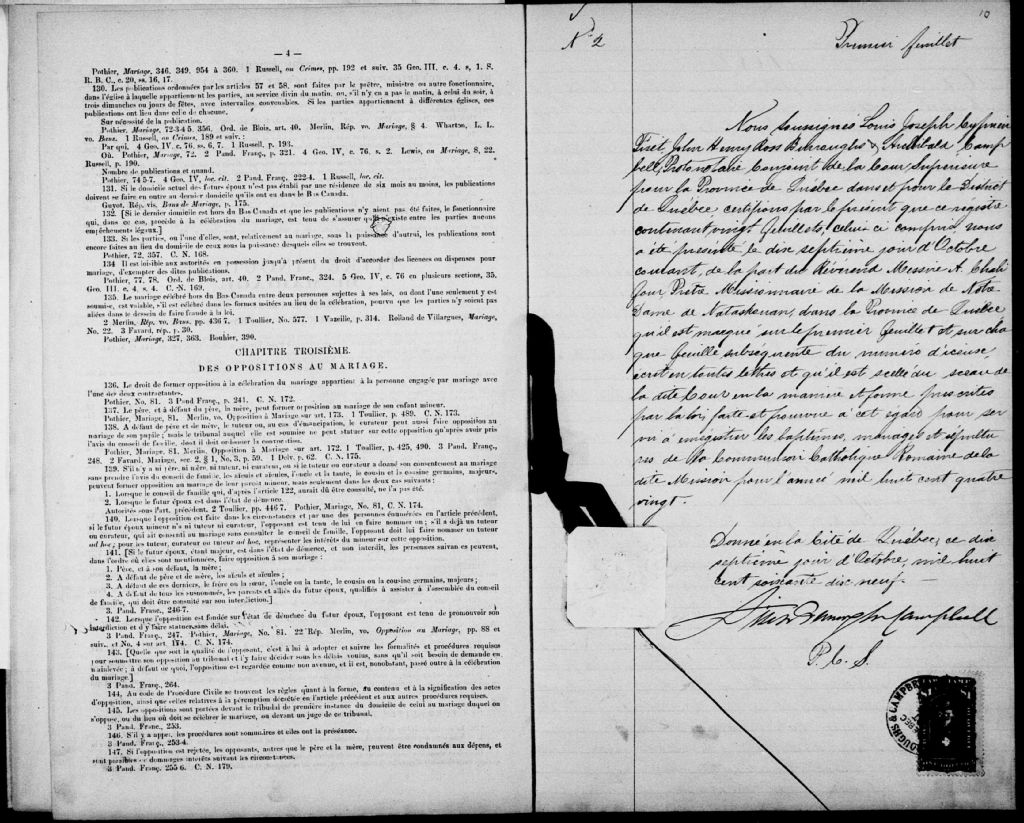 — 4 —
Pothier, Mariage, 346. 349. 954 à 360. 1 Russell, on Crimes, pp. 192 et suiv. 35 Geo. III. c. 4. s, 1. S.
R. B. C., c. 20, ss. 16, 17.
130. Les publications ordonnées par les articles 57 et 58, sont faites par le prêtre, ministre ou autre fonctionnaire,
dans l'église à laquelle appartiennent les parties, au service divin du matin, ou, s'il n'y en a pas le matin, à celui du soir, à
trois dimanches ou jours de fêtes, avec intervalles convenables. Si les parties appartiennent à différentes églises, ces
publications ont lieu dans celle de chacune.
Sur nécessité de la publication.
Pothier, Mariage, 72-3-4 5. 356. Ord. de Blois, art. 40. Merlin, Rép. vo. Mariage, § 4. Wharton, L. L.
vo. Bans. 1 Russell, on Crimes, 189 et suiv. :
Par qui. 4 Geo. IV, c. 76, ss. 6, 7. 1 Russell, p. 193.
Où. Pothier, Mariage, 72. 2 Pand. Franç., p. 321. 4 Geo. IV, c. 76, s. 2. Lewis, on Mariage, 8, 22.
Russell, p. 190.
Nombre de publications et quand.
Pothier, 74 5-7. 4 Geo. IV, loc. cit. 2 Pand. Franç., 222-4. 1 Russell, loc. cit.
131. Si le domicile actuel des futurs époux n'est pas établi par une résidence de six mois au moins, les publications
doivent se faire en outre au dernier domicile qu'ils ont eu dans le Bas Canada.
Guyot. Rép. vis. Bans de Mariage, p. 175.
132. [Si le dernier domicile est hors du Bas Canada et que les publications n'y aient pas été faites, le fonctionnaire
qui, dans ce cas, procède à la célébration du mariage, est tenu de s'assurer qu'il existe entre les parties aucuns
empêchements légaux.]
133. Si les parties, ou l'une d'elles, sont, relativement au mariage, sous la puissance d'autrui, les publications sont
encore faites au lieu du domicile de ceux sous la puissance desquels elles se trouvent.
Pothier, 72, 357. C. N. 168.
134 Il est loisible aux autorités en possession jusqu'à présent du droit d'accorder des licences ou dispenses pour
mariage, d'exempter des dites publications.
Pothier, 77. 78. Ord. de Blois, art. 40. 2 Pand. Franc., 324. 5 Geo. IV, c. 76 en plusieurs sections, 35.
Geo. III. c. 4. s. 4. C. N. 169.
135. Le mariage célébré hors du Bas Canada entre deux personnes sujettes à ses lois, ou dont l'une seulement y est
soumise, est valable, s'il est célébré dans les formes usitées au lieu de la célébration, pourvu que les parties n'y soient pas
allées dans le dessein de faire fraude à la loi.
2 Merlin, Rép. vo. Bans. pp. 436 7. 1 Toullier, No. 577. 1 Vazeille, p. 314. Rolland de Villargues, Mariage,
No. 22. 3 Favard, rép., p. 30.
Pothier, Mariage, 327, 363. Bouhier, 390.
CHAPITRE TROISIÈME.
DES OPPOSITIONS AU MARIAGE.
136. Le droit de former opposition à la célébration du mariage appartient à la personne engagée par mariage avec
l'une des deux contractantes.
Pothier, No. 81. 3 Pand Franç., p. 241. C. N. 172.
137. Le père, et à défaut du père, la mère, peut former opposition au mariage de son enfant mineur.
Pothier, Mariage, 81. Merlin, vo. Opposition à Mariage sur art. 173. 1 Toullier, p. 489. C. N. 173.
138. A défaut de père et de mère, le tuteur ou, au cas d'émancipation, le curateur peut aussi faire opposition au
mariage de son pupille ; mais le tribunal auquel elle est soumise ne peut statuer sur cette opposition qu'après avoir pris
l'avis du conseil de famille, dont il doit ordonner la convocation.
Pothier, Mariage, 81. Merlin, Opposition à Mariage sur art. 172. 1 Toullier, p. 425, 490. 3 Pand. Franç.,
248. 2 Favard, Mariage, sec. 2. § 1, No. 3, p. 59. 1 Delv. p. 62. C. N. 175.
139. S'il n'y a ni père, ni mère, ni tuteur, ni curateur, ou si le tuteur ou curateur a donné son consentement au mariage
sans prendre l'avis du conseil de famille, les aïeuls et aïeules, l'oncle et la tante, le cousin et la cousine germains, majeurs,
peuvent former opposition au mariage de leur parent mineur, mais seulement dans les deux cas suivants :
1. Lorsque le conseil de famille qui, d'après l'article 122, aurait dû être consulté, ne l'a pas été.
2. Lorsque le futur époux est dans l'état de démence.
Autorités sous Part. précédent, 2 Toullier, pp. 446 7. Pothier, Mariage, No. 81, C. N. 174.
140. Lorsque l'opposition est faite dans les circonstances et par une des personnes énumérées en l'article précédent,
si le futur époux mineur n'a ni tuteur ni curateur, l'opposant est tenu de lui en faire nommer un ; s'il a déjà un tuteur
ou curateur, qui ait consenti au mariage sans consulter le conseil de famille, l'opposant doit lui faire nommer un tuteur
ad hoc ; pour les tuteur, curateur ou tuteur ad hoc, représenter les intérêts du mineur sur cette opposition.
141. [Si le futur époux, étant majeur, est dans l'état de démence, et non interdit, les personnes suivantes peuvent,
dans l'ordre où elles sont mentionnées, faire opposition à son mariage :
1. Père, et à son défaut, la mère ;
2. A défaut de père et de mère, les aïeuls et aïeules ;
3. A défaut de ces derniers, le frère ou la sœur, l'oncle ou la tante, le cousin ou la cousine germains, majeurs ;
4. A défaut de tous les susnommés, les parents et alliés du futur époux, qualifiés à assister à l'assemblée du conseil
de famille, qui doit être consulté sur son interdiction.]
3. Pand. Franç., 246-7.
142. Lorsque l'opposition est fondée sur l'état de démence du futur époux, l'opposant est tenu de promouvoir son
interdiction et d'y faire statuer sans délai.
3 Pand. Franç., 247. Pothier, Mariage, No. 81. 22 Rép. Merlin, vo. Opposition au Mariage, pp. 88 et
suiv., et No. 4 sur art. 174. C. N. 174.
143. [Quelle que soit la qualité de l'opposant, c'est à lui à adopter et suivre les formalités et procédures requises
pour soumettre son opposition au tribunal et l'y faire décider sous les délais voulus, sans qu'il soit besoin de demande en
mainlevée ; à défaut de quoi, l'opposition est regardée comme non avenue, et il est, nonobstant, passé outre à la célébration
du mariage.]
3 Pand. Franç., 264.
144. Au code de Procédure Civile se trouvent les règles quant à la forme, au contenu et à la signification des actes
d'opposition, ainsi que celles relatives à la péremption décrétée en l'article précédent et aux autres procédures requises.
145. Les oppositions sont portées devant le tribunal de première instance du domicile de celui au mariage duquel on
s'oppose, ou du lieu où doit se célébrer le mariage, ou devant un juge de ce tribunal.
3 Pand. Franc., 253.
146. S'il y a appel, les procédures sont sommaires et elles ont la préséance.
3 Pand. Franç., 253-4.
147. Si l'opposition est rejetée, les opposants, autres que le père et la mère, peuvent être condamnés aux dépens, et
sont passibles de dommages intérêts suivant les circonstances.
3 Pand. Franç. 255 6. C. N. 179.
10
No 2
Premier feuillet
Nous soussignés Louis Joseph Cyprien
Fiset, John Henry Ross Burroughs & Archibald Camp
bell, Protonotaire Conjoint de la Cour Supérieure
pour la Province de Québec dans et pour le District
de Québec certifions par le présent que ce registre
contenant vingt feuillets, celui ci compris, nous
a été présenté le dix septième jour d'Octobre
courant, de la part du Révérend Messire A. Chali
four Prêtre Missionnaire de la Mission de Notre
Dame de Nataskouan, dans la Province de Québec
qu'il est marqué sur le premier feuillet et sur cha
que feuille subséquente du numéro d'iceux,
écrit en toutes lettres et qu'il est scellé du sceau de
la dite Cour en la manière et forme prescrites
par la loi, faite et pourvue à cet égard pour ser
vir à enregistrer les baptêmes, mariages et sépultu
res de la Communion Catholique Romaine de la
dite Mission pour l'année mil huit cent quatre
vingt.
Donné en la Cité de Québec, ce dix
septième jour d'Octobre, mil huit
cent soixante dix neuf.
Fiset Burroughs Campbell
P. C. S.